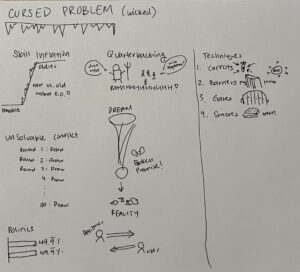 CURSED PROBLEM (wicked)
Skill Inflation
oldies
new vs. old
Newbie
Quarterbacking
RAHHHHHHHHHHHHH
UnSolvable conflict
Round 1: Draw
Round 2: Draw
Round 3: Draw
4: Draw
∞: Draw
DREAM
Broken
Promise!
REALITY
Politics
49.9%
49.9%
Designer
user
Techniques
1. Carrots
2. Barriers
3. Gates
4. Smores